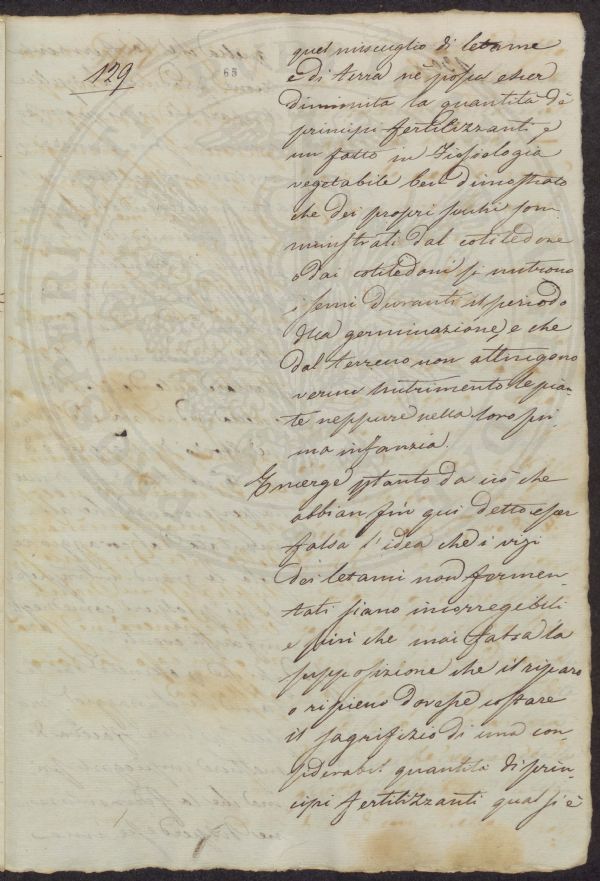 129
65
quel miscuglio di letame
e di terra ne possa esser
diminuita la quantità de
principi fertilizzanti, è
un fatto in Fisiologia
vegetabile ben dimostrato
che dei propri succhi som
ministrati dal cotiledone
o dai cotiledoni si nutrono
i semi durante il periodo
della germinazione, e che
dal terreno non attingono
verun nutrimento le pian
te neppure nella loro pri
ma infanzia.
Emerge pertanto da ciò che
abbian fin qui detto esser
falsa l'idea che i vizi
dei letami non fermen-
tati siano incorregibili
e più che mai falsa la
supposizione che il riparo
o ripieno dovesse costare
il sagrifizio di una con
siderabil quantità di prin-
cipi fertilizzanti qual si è